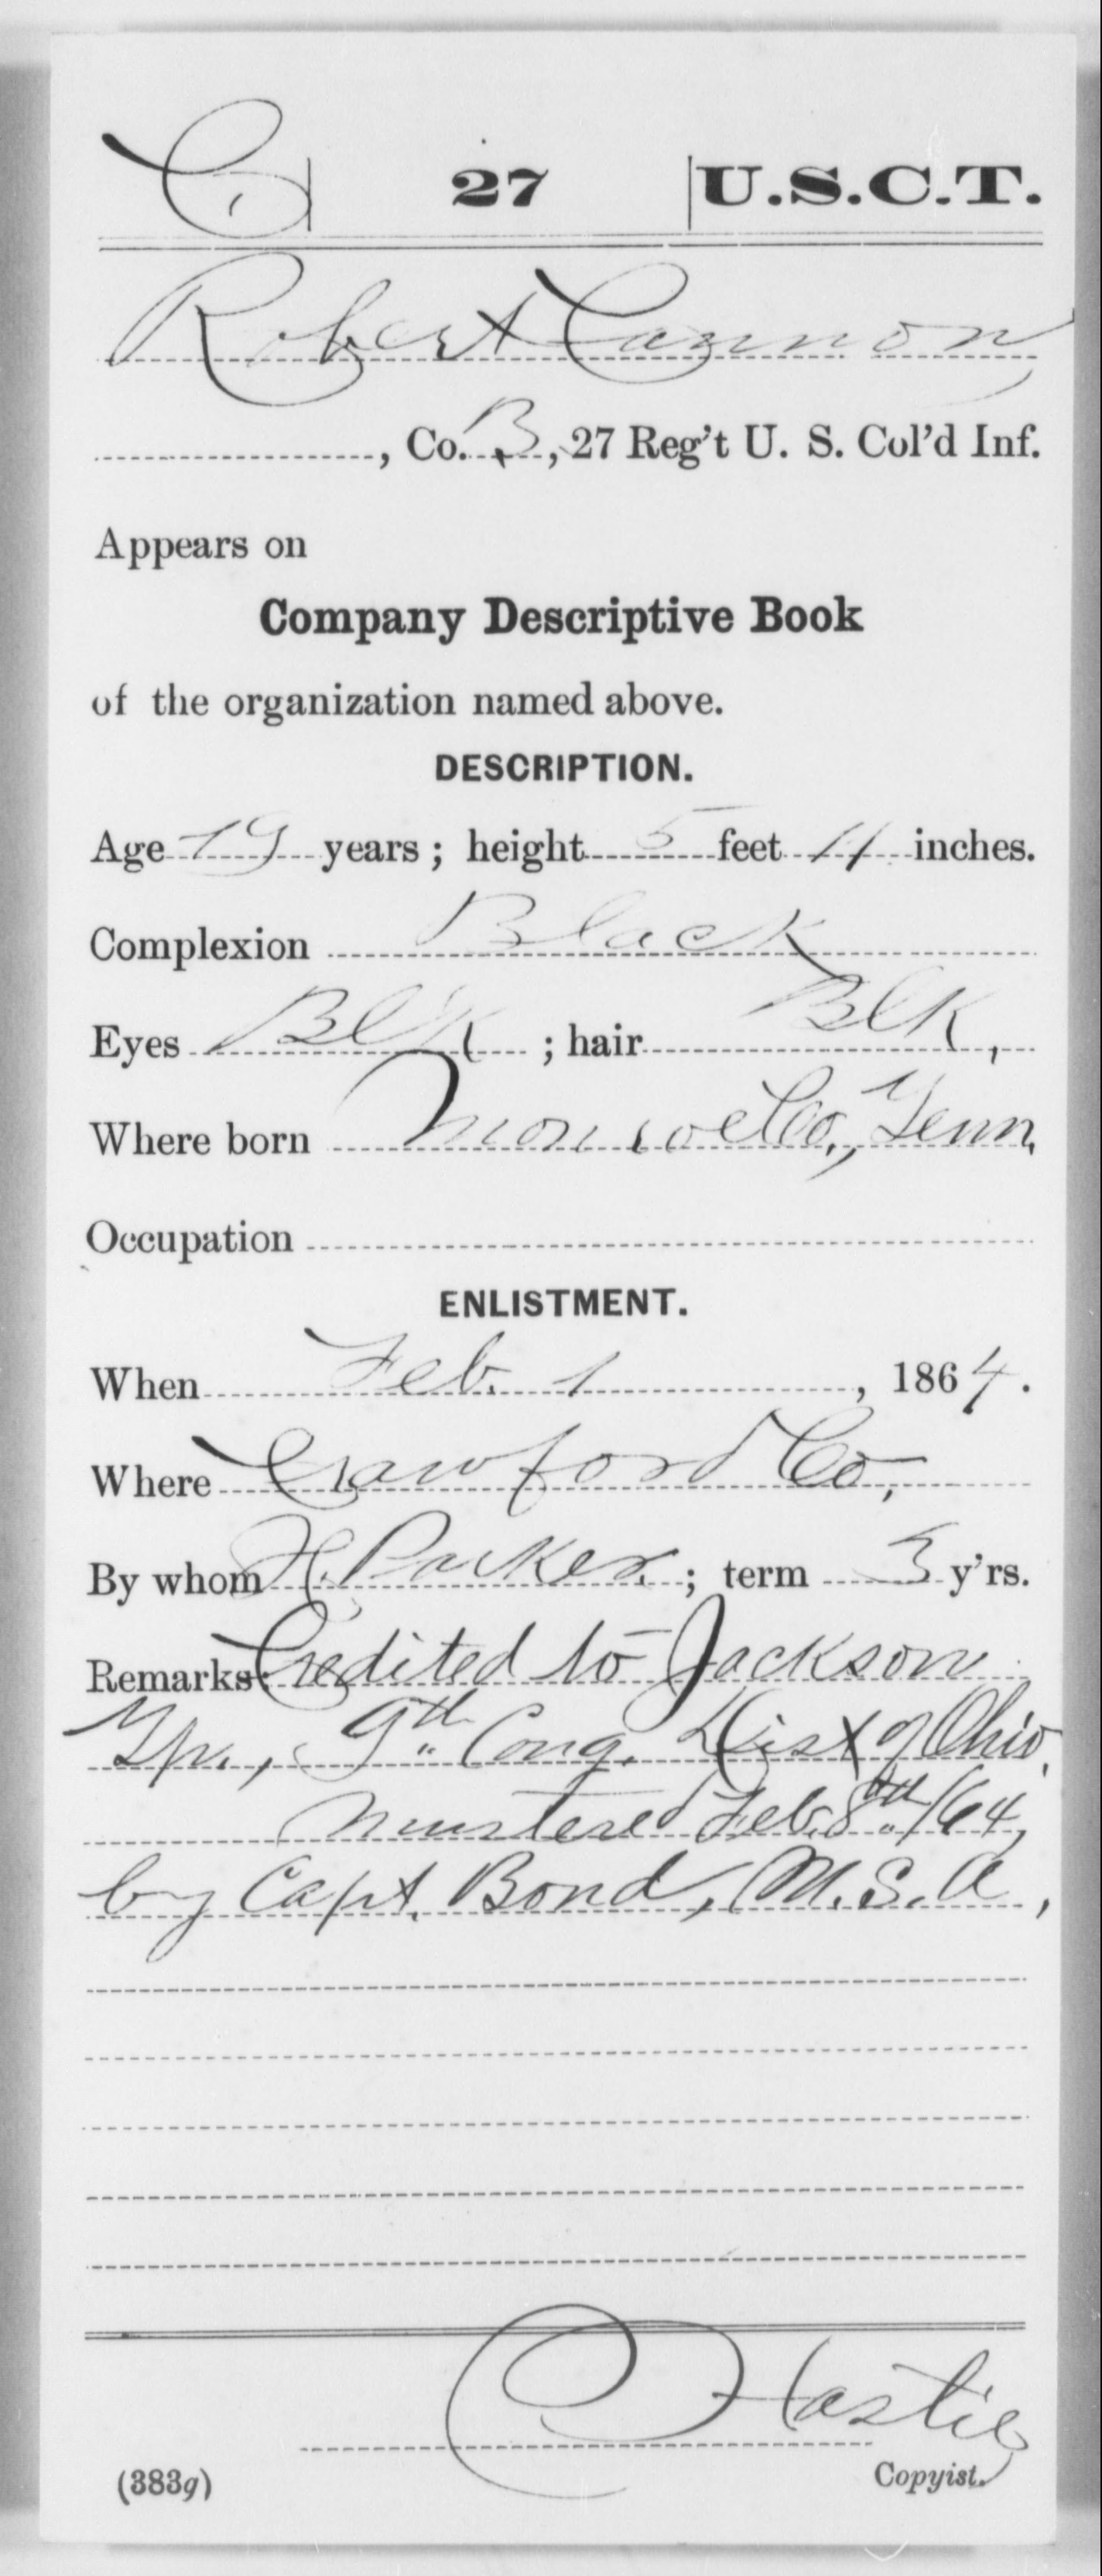 C | 27 | U.S.C.T.
Robert Cannon
, Co. B, 27 Reg't U. S. Col'd Inf.
Appears on
Company Descriptive Book
of the organization named above.
DESCRIPTION.
Age 19 years; height 5 feet 11 inches.
Complexion Black
Eyes Bl'k ; hair Blk,
Where born Monroe Co., Tenn,
Occupation
ENLISTMENT.
When Feb. 1, 1864.
Where Crawford Co,
By whom H. Parker ; term 3 y'rs.
Remarks: Credited to Jackson
Tp., 9th Cong. Dist of Ohio.
Mustered Feb. 8th/64,
by Capt. Bond, U.S.A,
Hastie
(383g) Copyist.